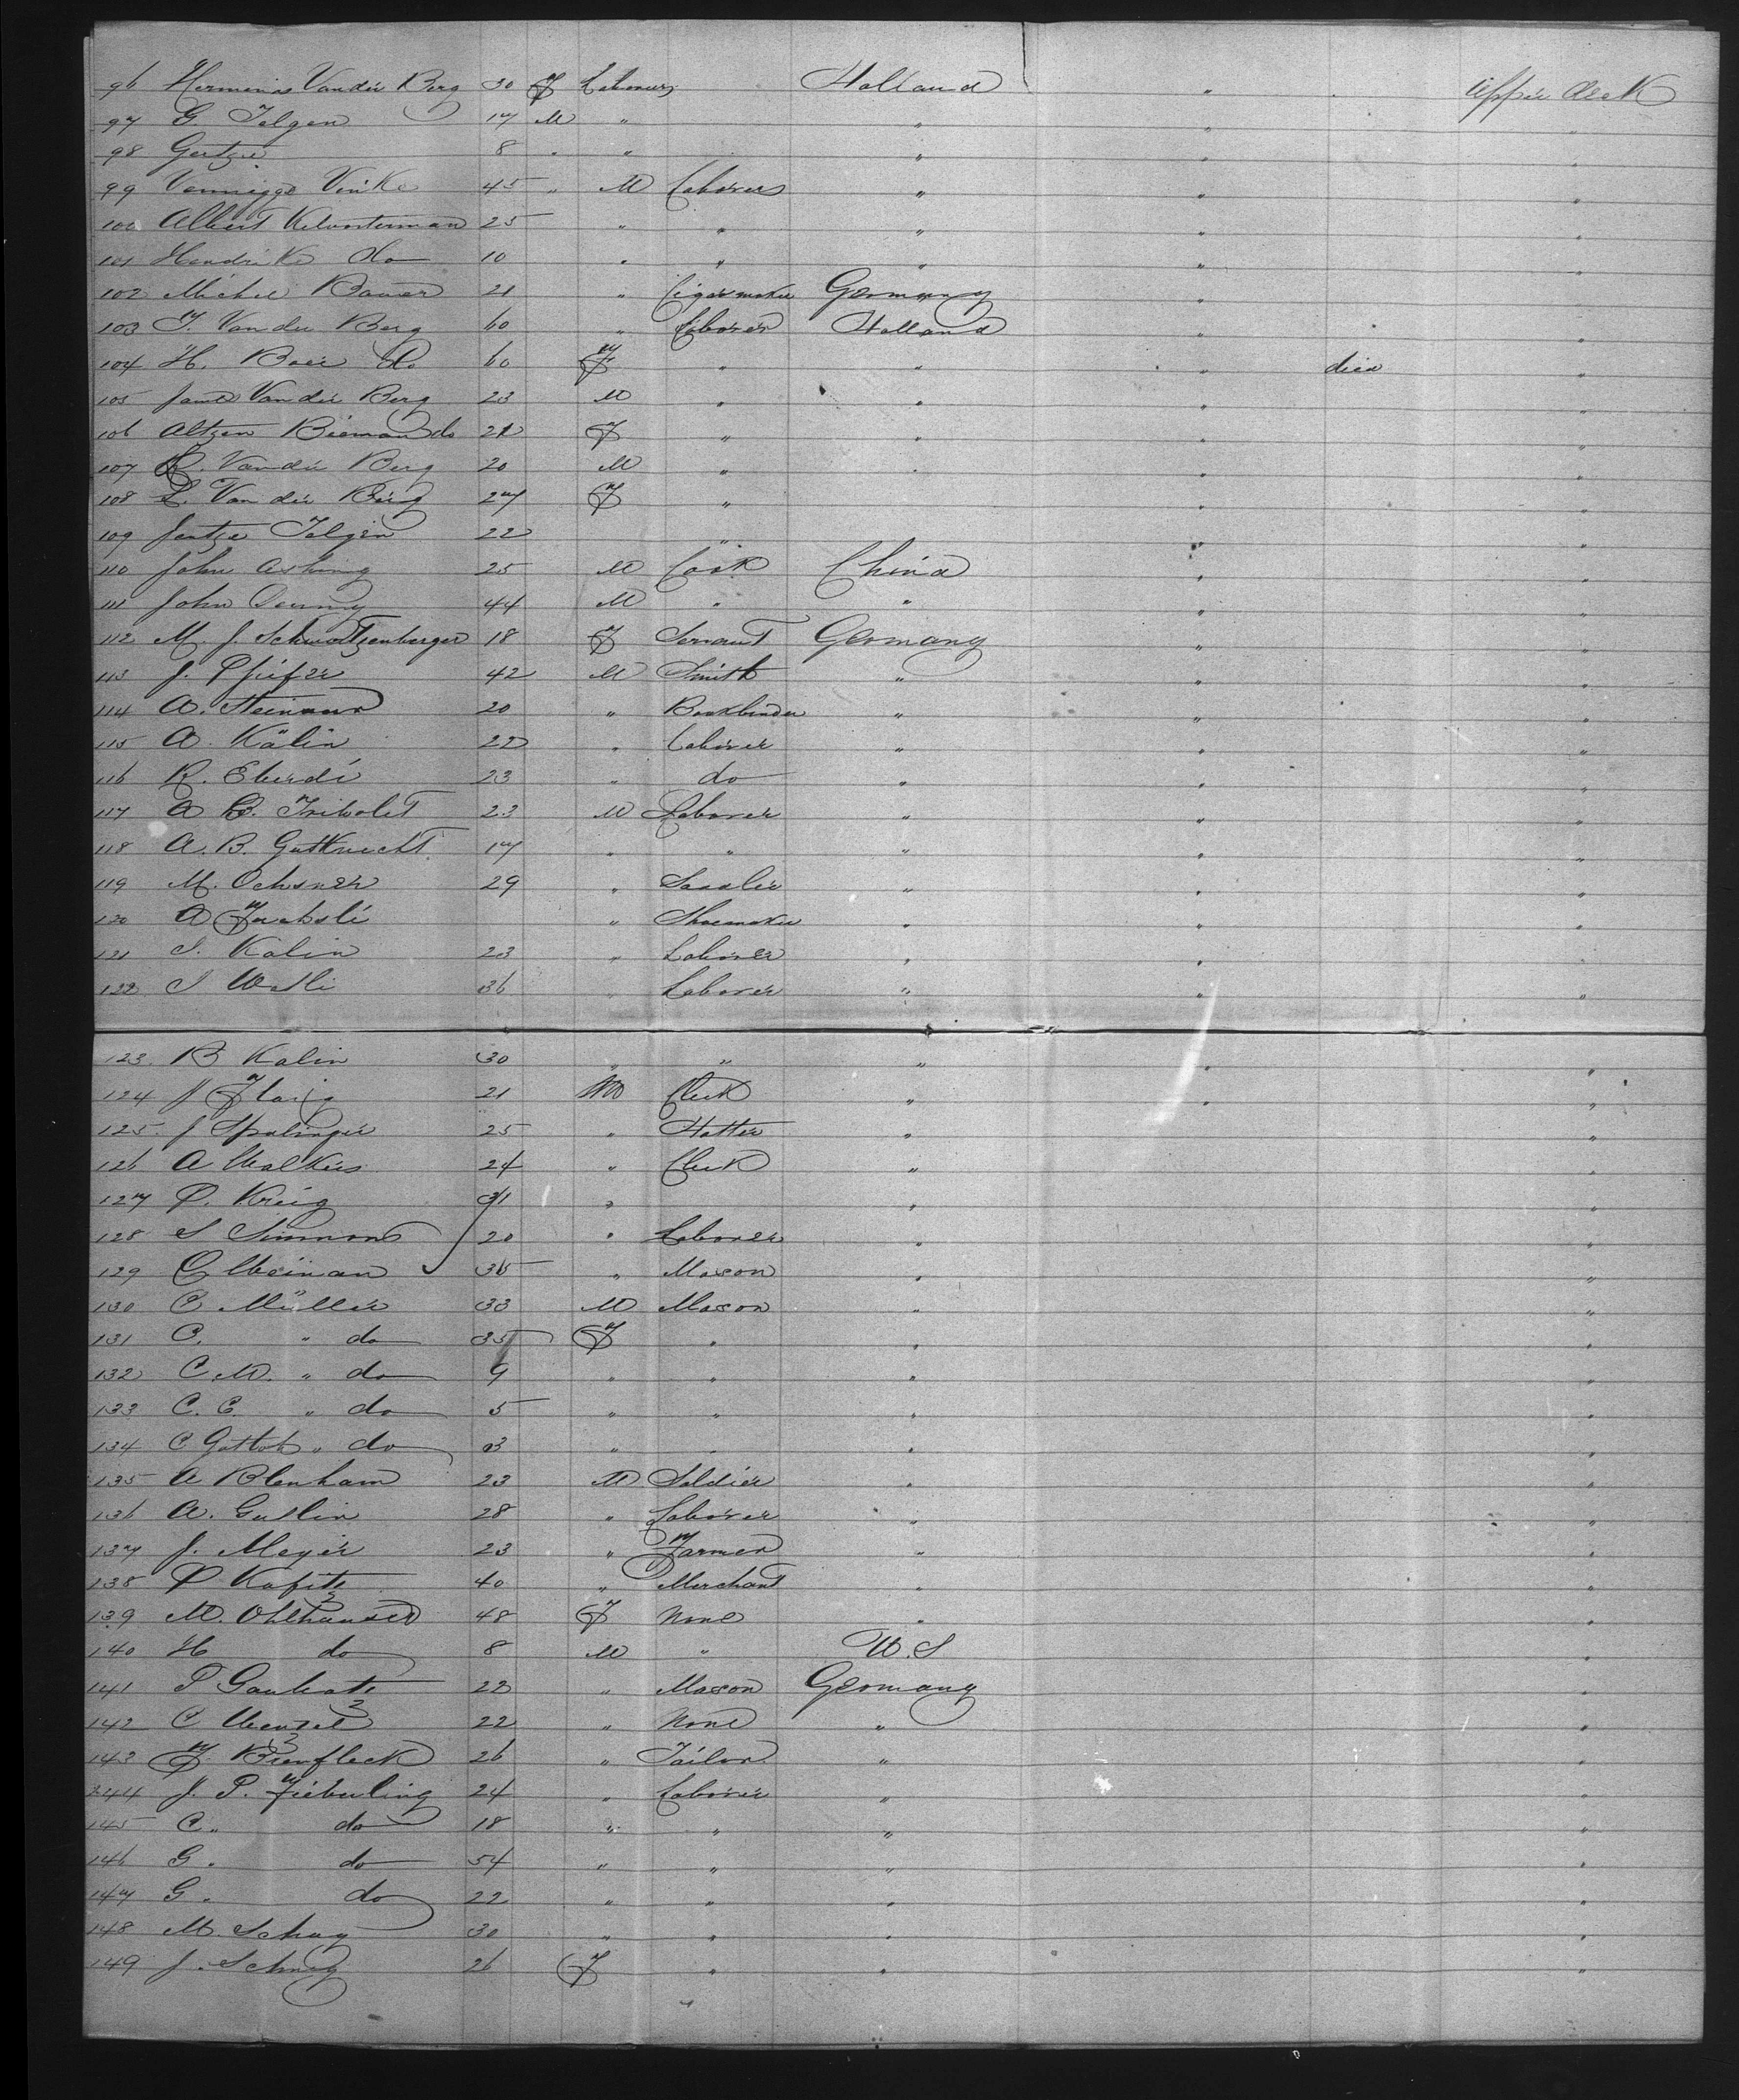 96 Herminas Vander Berg 30 F Laborers Holland " Upper deck
97 G Telgen 17 M " " " "
98 Gertze 8 " " " " "
99 Vennigge Vinke 45 " M Laborers " " "
100 Albert Kelvonterman 25 " " " " "
101 Hendrike do 10 " " " " "
102 Michel Bauer 21 " Cigarmaker Germany " "
103 J. Van der Berg 60 " Laborer Holland " "
104 H. Boer do 60 F " " " died "
105 Jand Van der Berg 23 M " " " "
106 Altzen Bieman do 21 F " " " "
107 H. Vander Berg 20 M " " " "
108 L. Van der Berg 27 F " " "
109 Jantze Telgen 22 " " "
110 John Ashung 25 M Cook China " "
111 John Oeung 44 M " " " "
112 M. J. Schwoltzenberger 18 F Servant Germany " "
113 J. Pfeifer 42 M Smith " " "
114 A. Steinaur 20 " Bookbinder " " "
115 A. Kälin 22 " Laborer " " "
116 R. Eberdi 23 " do " " "
117 A B. Tribolet 23 M Laborer " " "
118 A. B. Gutknecht 17 " " " " "
119 M. Ochsner 29 " Saddler " " "
120 A Fuchsli " Shoemaker " " "
121 S. Kälin 23 " Laborer " " "
122 S Welli 36 " Laborer " " "
123 B Kalin 30 " " " " "
124 J Flaig 21 M Clerk " " "
125 J Spalinger 25 " Hatter " "
126 A Walkers 24 " Clerk " "
127 P. Kreig 31 " " "
128 S Simmons 20 " Laborer " "
129 C Weinan 35 " Mason " "
130 C Müller 33 M Mason " "
131 C. " do 35 F " " "
132 C. M. " do 9 " " " "
133 C. C. " do 5 " " " "
134 C Gottob " do 3 " " " "
135 A Blenham 23 M Soldier " "
136 A. Guslin 28 " Laborer " "
137 J. Meyer 23 " Farmer " "
138 P Kafitz 40 " Merchant " "
139 M. Ohlhauser 48 F None " "
140 H do 8 M " U.S
141 P Gaukatz 22 " Mason Germany "
142 C Wenzel 22 " None " "
143 F. Bierfleck 26 " Tailor " "
144 J. P. Zieberling 24 " Laborer " "
145 C. do 18 " " " "
146 G. do 54 " " " "
147 G. do 22 " " " "
148 M. Schug 30 " " " "
149 J. Schug 26 F " " "